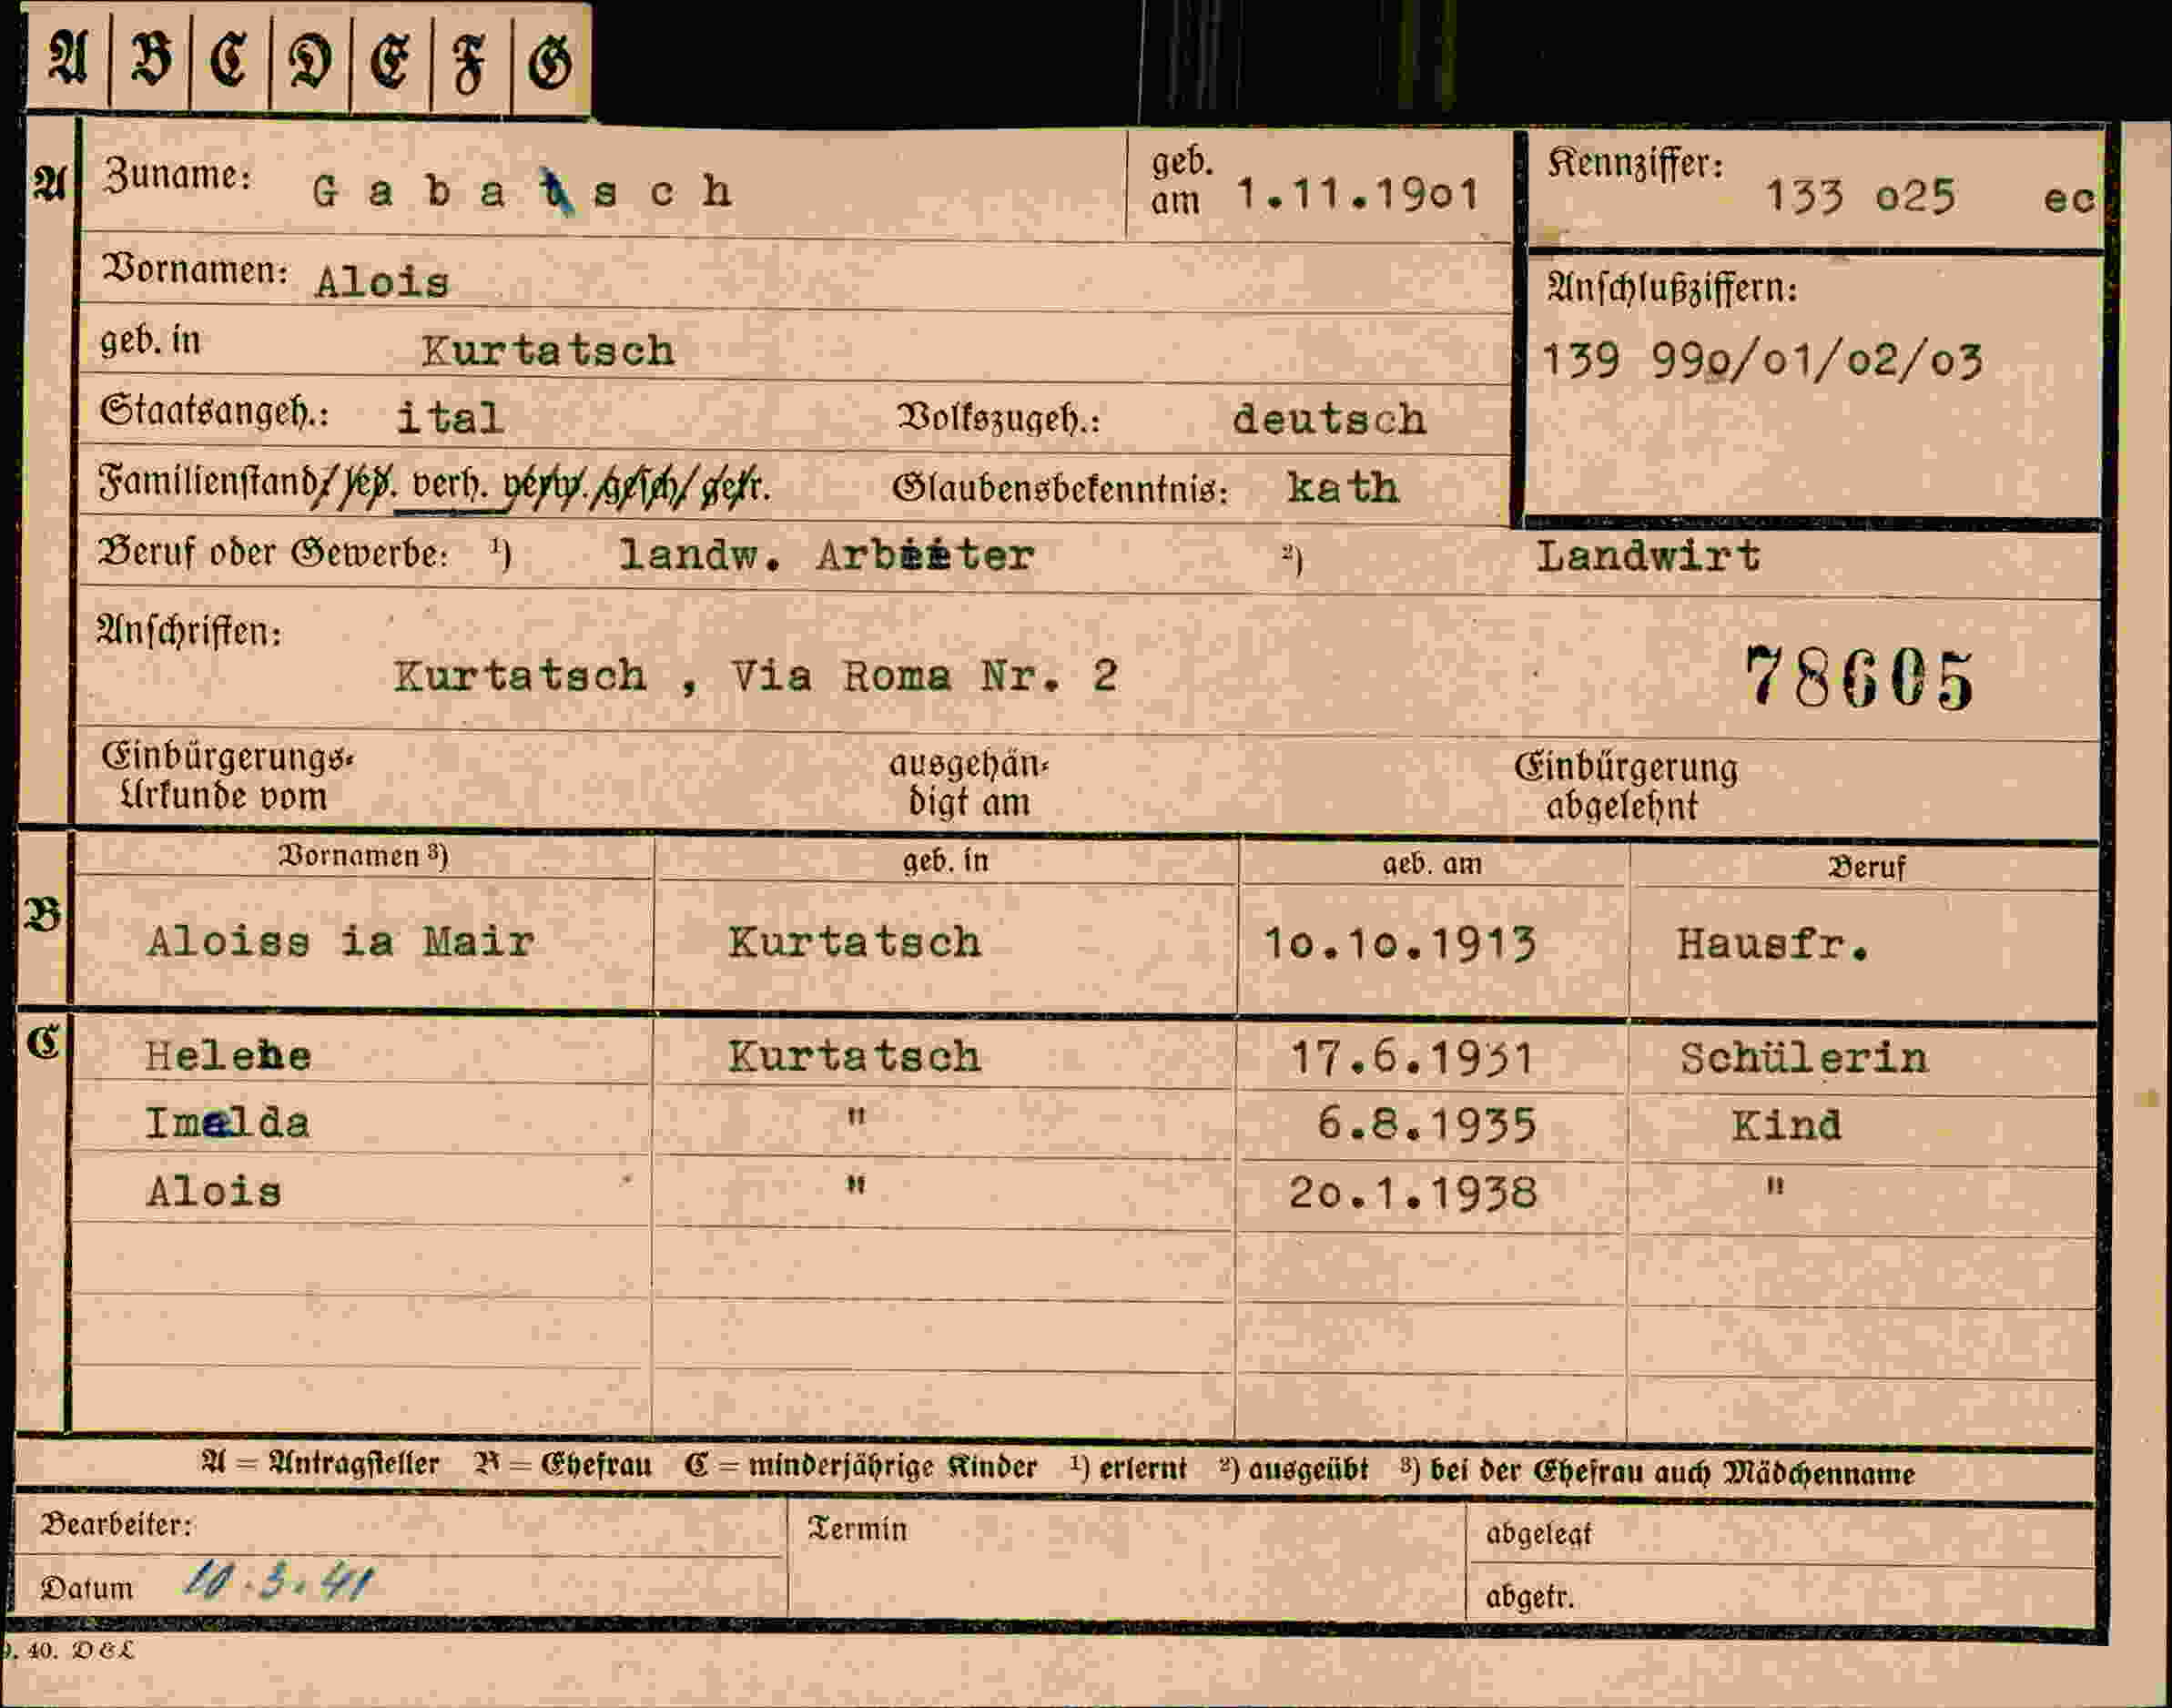 A B C D E F G
A Zuname: Gabatsch geb. am 1.11.19o1 Kennziffer: 133 o25 ec
Vornamen: Alois
Anschlußziffern:
geb. in Kurtatsch
139 99o/o1/o2/o3
Staatsangeh.: ital Volkszugeh.: deutsch
Familienstand/ led. verh. verw. gesch. getr. Glaubensbekenntnis: kath
Beruf oder Gewerbe: ¹) landw. Arbeiter ²) Landwirt
Anschriften:
Kurtatsch , Via Roma Nr. 2 78605
Einbürgerungs- ausgehän- Einbürgerung
Urkunde vom digt am abgelehnt
Vornamen ³) geb. in geb. am Beruf
B Aloiss ia Mair Kurtatsch 1o.1o.1913 Hausfr.
C Helene Kurtatsch 17.6.1931 Schülerin
Imelda " 6.8.1935 Kind
Alois " 2o.1.1938 "
A = Antragsteller B = Ehefrau C = minderjährige Kinder ¹) erlernt ²) ausgeübt ³) bei der Ehefrau auch Mädchenname
Bearbeiter: Termin abgelegt
Datum 10.3.41 abgetr.
40. D & L